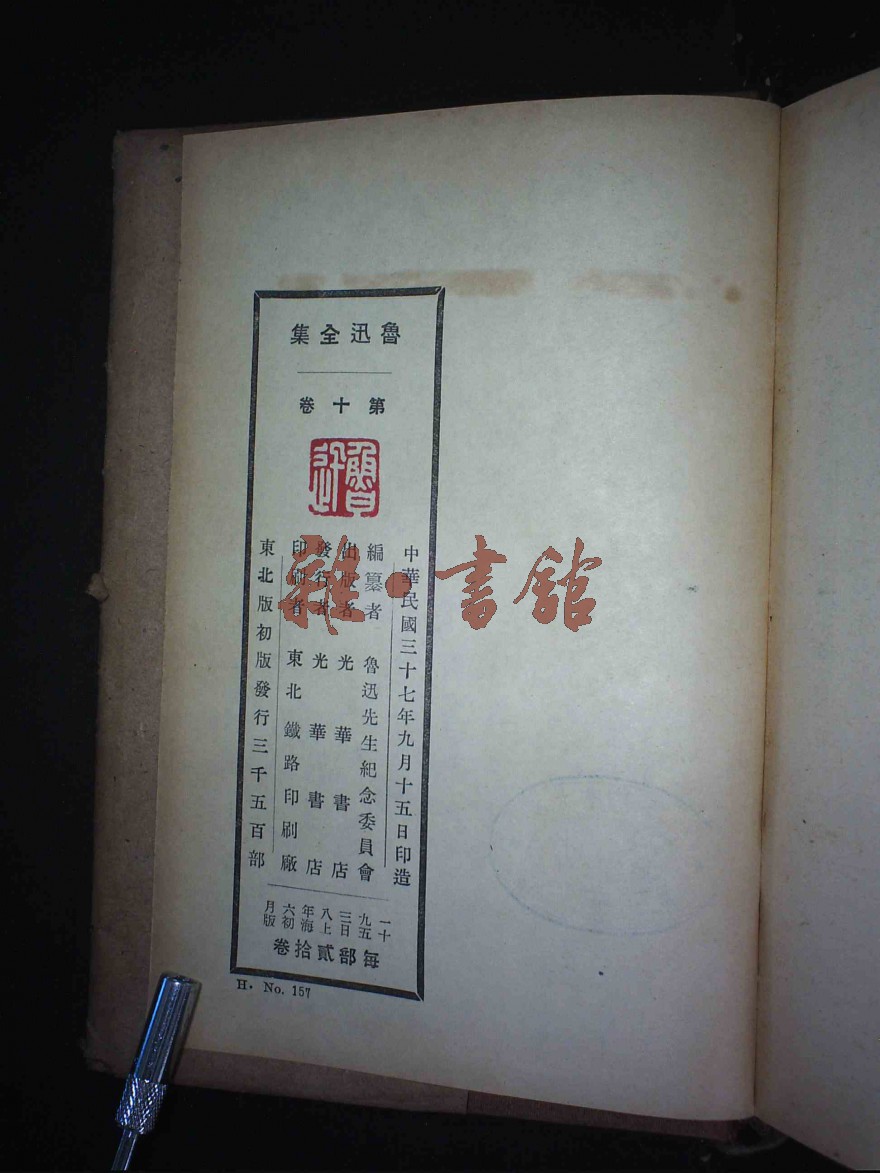 魯迅全集
第十卷
魯迅
中華民國三十七年九月十五日印造
編纂者 魯迅先生紀念委員會
出版者 光華書店
發行者 光華書店
印刷者 東北鐵路印刷廠
東北版初版發行三千五百部
一九三八年六月
十五日上海初版
每部貳拾卷
H. No. 157
雜·書館